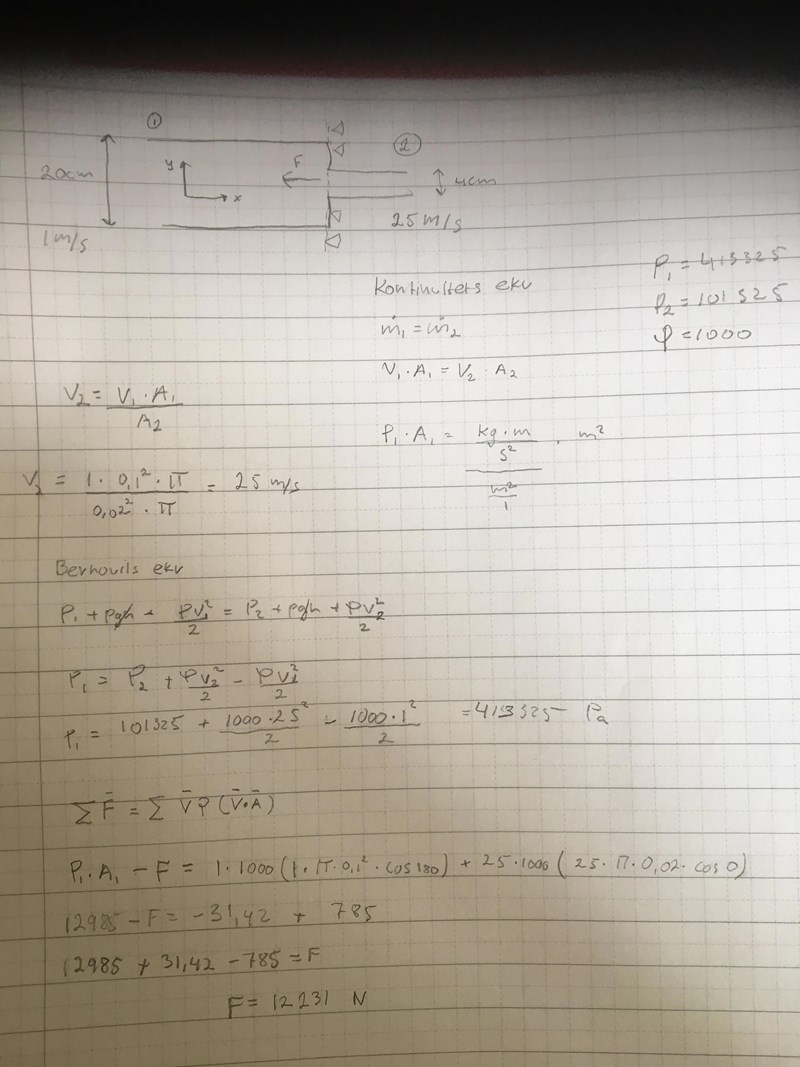 ①
②
20cm
y
x
F
4cm
1 m/s
25 m/s
P₁ = 413325
Kontinuiters ekv
P₂ = 101325
ṁ₁ = ṁ₂
φ = 1000
V₁ · A₁ = V₂ · A₂
V₂ = V₁ · A₁ / A₂
P₁ · A₁ = (kg · m / s²) / (m² / 1) · m²
V₂ = 1 · 0,1² · π / 0,02² · π = 25 m/s
Bernouils ekv
P₁ + ρgh + ρv₁²/2 = P₂ + ρgh + ρv₂²/2
P₁ = P₂ + ρv₂²/2 - ρv₁²/2
P₁ = 101325 + 1000 · 25²/2 - 1000 · 1²/2 = 413325 Pa
∑F̄ = ∑ V̄ρ (V̄ · Ā)
P₁ · A₁ - F = 1 · 1000 (1 · π · 0,1² · cos 180) + 25 · 1000 (25 · π · 0,02 · cos 0)
12985 - F = -31,42 + 785
12985 + 31,42 - 785 = F
F = 12231 N